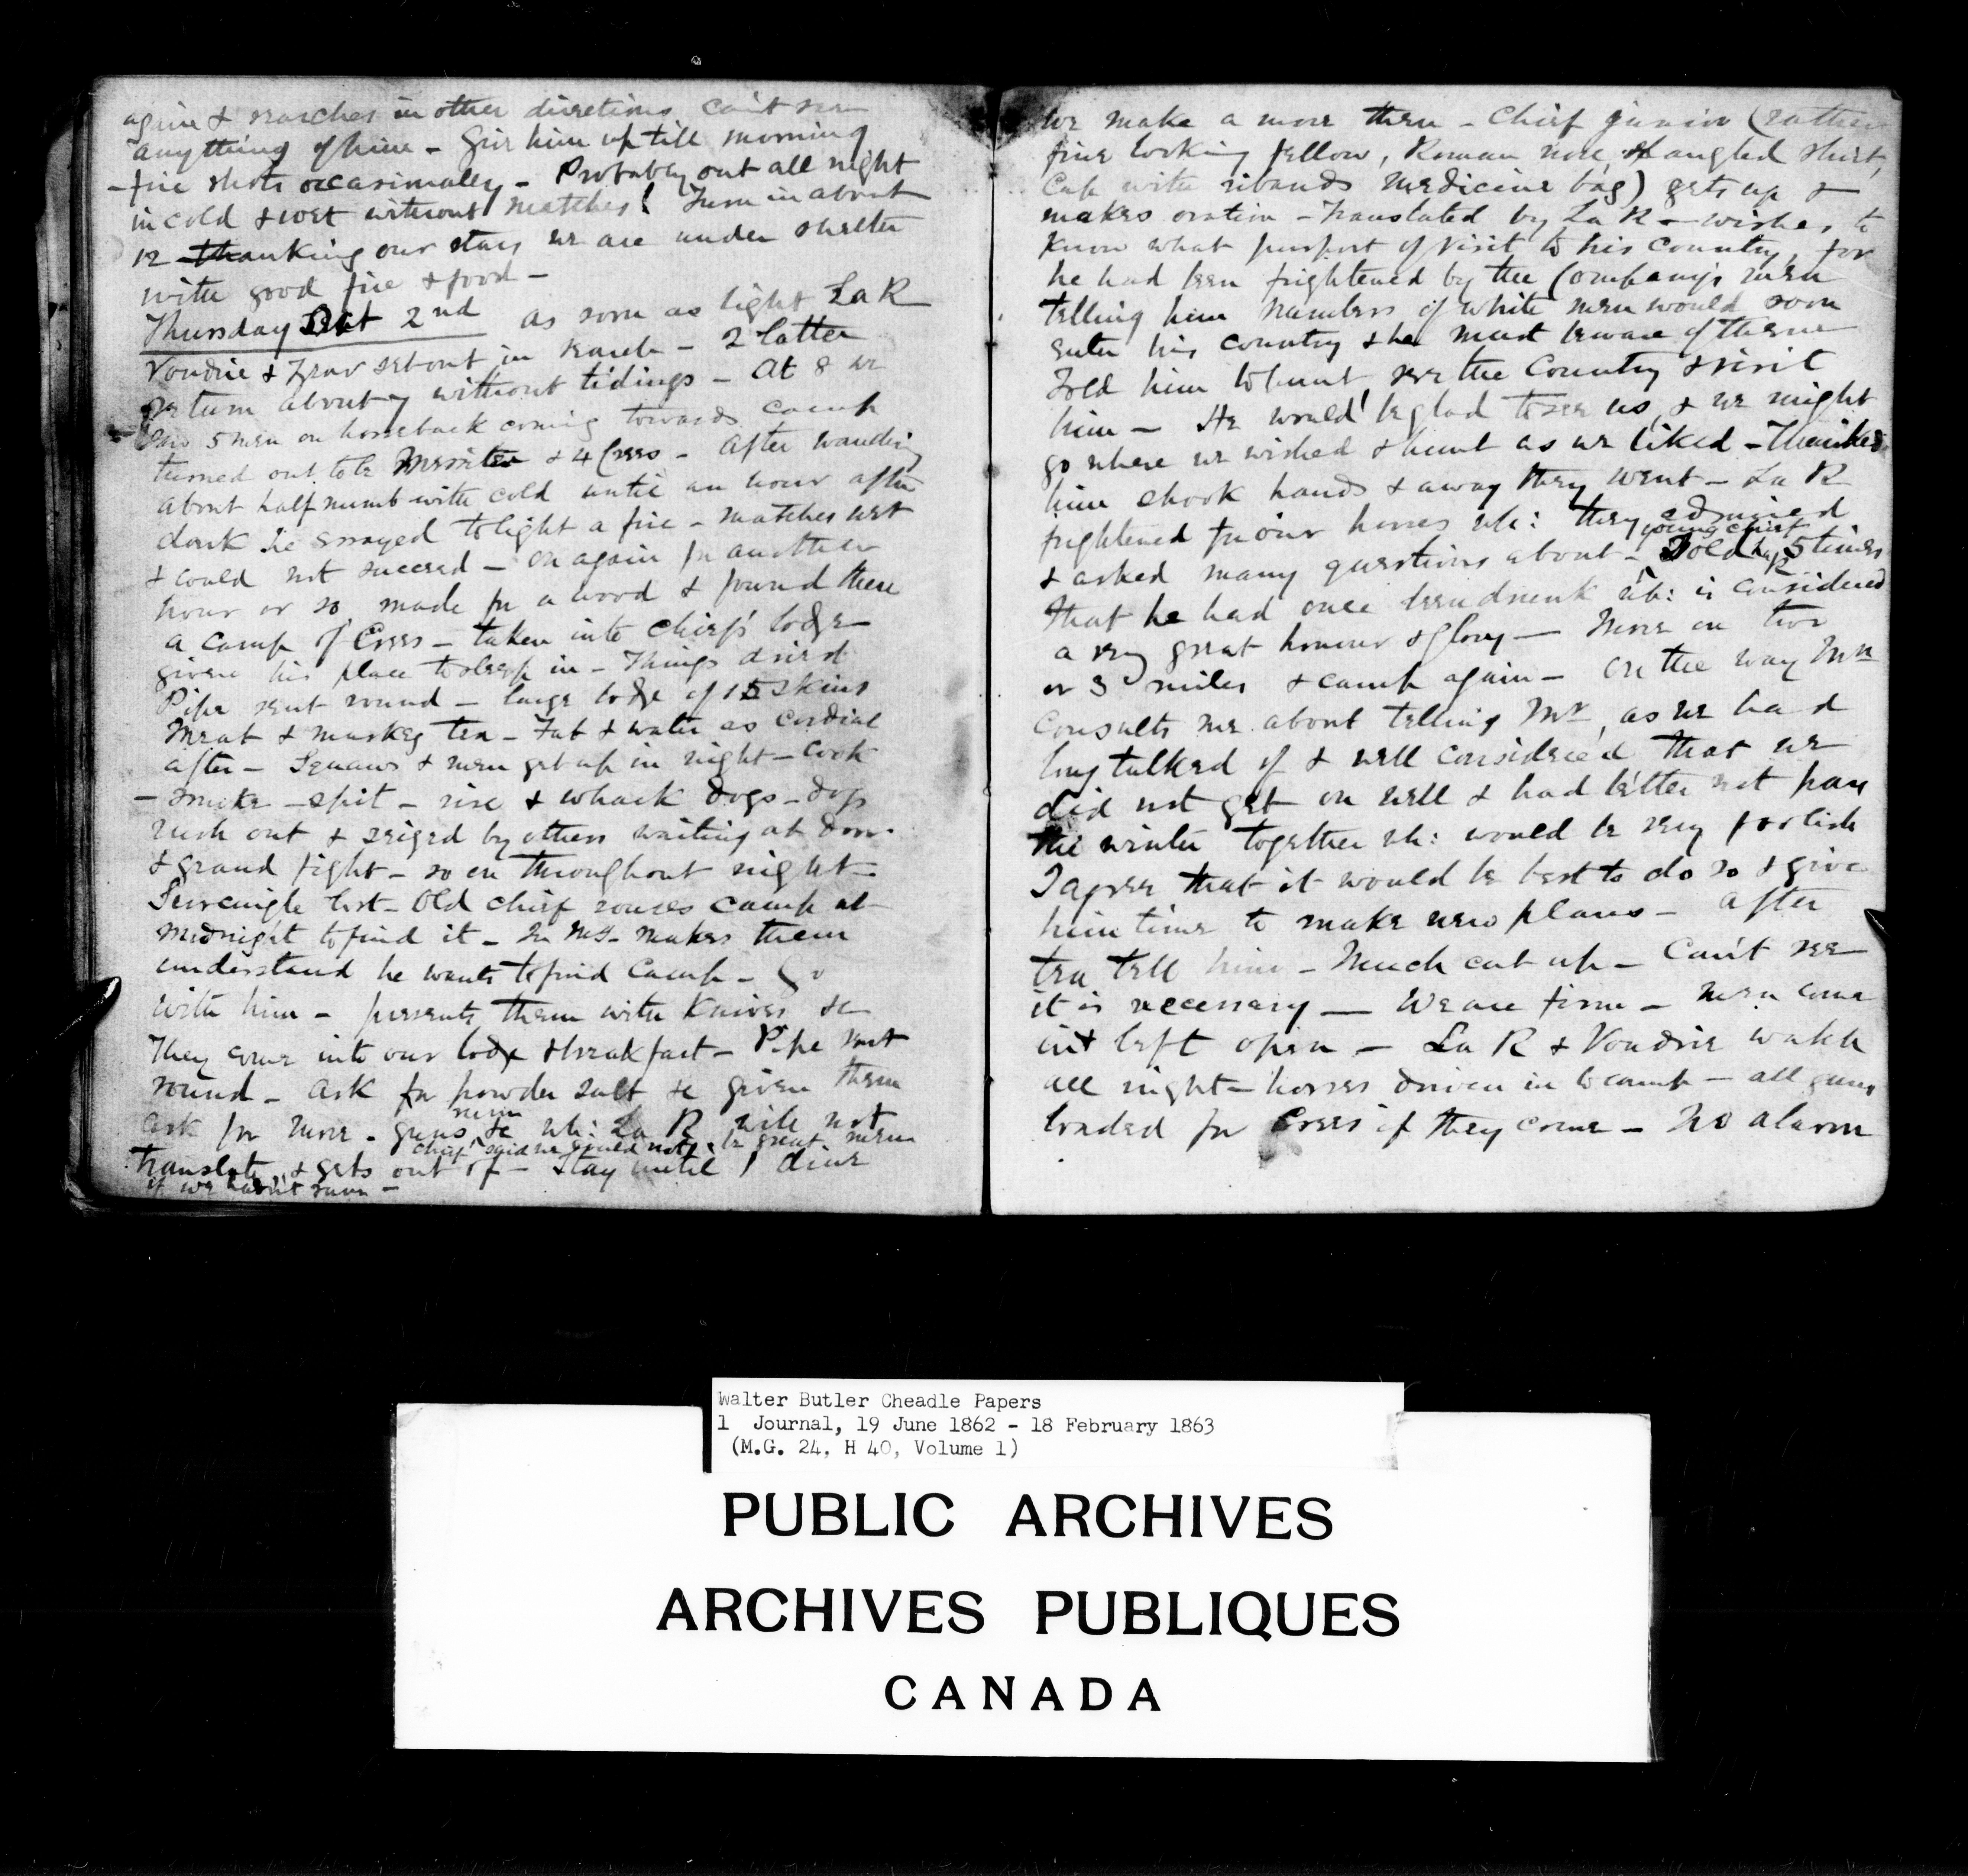 again & searches in other directions can't see
anything of him - Give him up till morning
- fire shots occasionally - Probably out all night
in cold & wet without matches! Turn in about
12 thanking our stars we are under shelter
with good fire & food -
Thursday Oct 2nd as soon as light La R
Voudrie & Zear set out in search - 2 latter
return about 7 without tidings - At 8 we
saw 5 men on horseback coming towards camp
turned out to be & 4 Crees - After wandering
about half numb with cold until an hour after
dark he essayed to light a fire - matches wet
& could not succeed - On again for another
hour or so, made for a wood & found there
a camp of Crees - taken into chief's lodge
given his place to sleep in - Things dried
Pipe sent round - large lodge of 15 skins
Meat & muskeg tea - Fat & water as cordial
after - Squaws & men get up in night - cook
- smoke - spit - rise & whack dogs - dogs
rush out & seized by others waiting at door
& grand fight - so on throughout night -
Surcingle lost - Old chief rouses camp at
midnight to find it - In Mg. makes them
understand he wants to find Camp - Go
with him - presents them with knives &c
They come into our lodge & breakfast - Pipe sent
round - Ask for powder salt &c given them
rum
ask for more - guns &c wh: La R will not
chief said we could not be great men
translate & gets out of - Stay until 1 dine
if we hadn't rum -
We make a move then - Chief junior (rather
fine looking fellow, Roman nose, spangled shirt,
Cap with ribands medicine bag) gets up &
makes oration - Translated by La R - wishes to
know what purport of visit to his country, for
he had been frightened by the Company's men
telling him numbers of white men would soon
enter his country & he must beware of them
Told him to hunt, see the Country & visit
him - He would be glad to see us, & we might
go where we wished & hunt as we liked - Thanked
him shook hands & away they went - La R
frightened for our horses wh: they admired
young chief
& asked many questions about - Told La R 5 times
that he had once been drunk wh: is considered
a very great honour & glory - Move on two
or 3 miles & camp again - On the way Mn
consults me about telling Mr, as we had
long talked of & well considered, that we
did not get on well & had better not pass
the winter together wh: would be very foolish
I agree that it would be best to do so & give
him time to make new plans - After
tea tell him - Much cut up - Can't see
it is necessary - We are firm - Men come
in & left open - La R & Voudrie watch
all night - horses driven in to camp - all guns
loaded for Crees if they come - No alarm
Walter Butler Cheadle Papers
1 Journal, 19 June 1862 - 18 February 1863
(M.G. 24, H 40, Volume 1)
PUBLIC ARCHIVES
ARCHIVES PUBLIQUES
CANADA